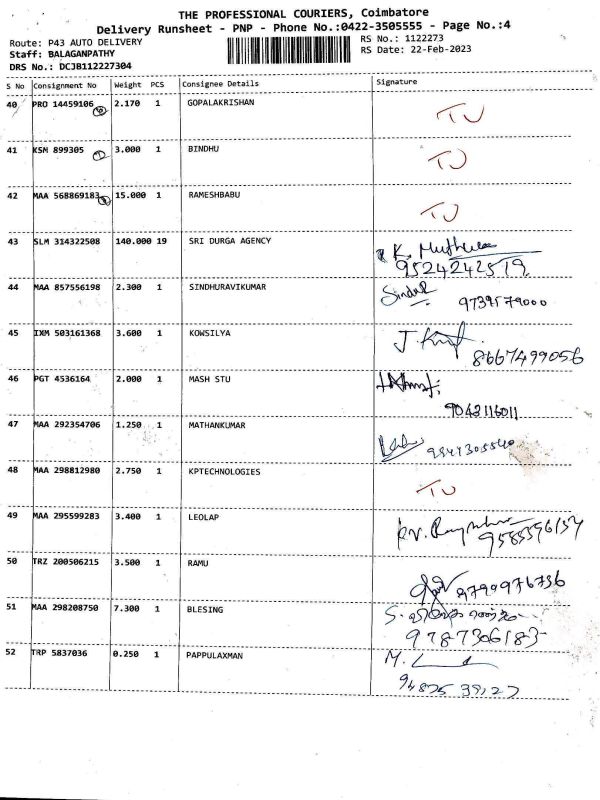 THE PROFESSIONAL COURIERS, Coimbatore
Delivery Runsheet - PNP - Phone No.:0422-3505555 - Page No.:4
Route: P43 AUTO DELIVERY
RS No.: 1122273
Staff: BALAGANPATHY
RS Date: 22-Feb-2023
DRS No.: DCJB112227304
S No Consignment No Weight PCS Consignee Details Signature
40 PRO 14459106 2.170 1 GOPALAKRISHAN TU
41 KSM 899305 3.000 1 BINDHU TU
42 MAA 568869183 15.000 1 RAMESHBABU TU
43 SLM 314322508 140.000 19 SRI DURGA AGENCY K.
9524242519
44 MAA 857556198 2.300 1 SINDHURAVIKUMAR
9739579000
45 IXM 503161368 3.600 1 KOWSILYA J.
8667499056
46 PGT 4536164 2.000 1 MASH STU
9043116011
47 MAA 292354706 1.250 1 MATHANKUMAR
48 MAA 298812980 2.750 1 KPTECHNOLOGIES TU
49 MAA 295599283 3.400 1 LEOLAP
50 TRZ 200506215 3.500 1 RAMU 9799976736
51 MAA 298208750 7.300 1 BLESING S.
9787306183
52 TRP 5837036 0.250 1 PAPPULAXMAN M.